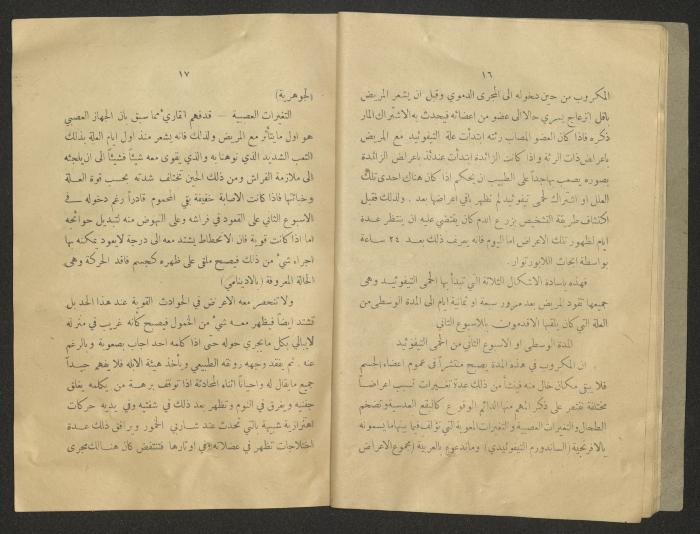 ١٦
المكروب من حين دخوله الى المجرى الدموي وقبل ان يشعر المريض
باقل انزعاج يسري حالا الى عضو من اعضائه فيحدث به الاشتراك المار
ذكره فاذا كان العضو المصاب رئته ابتدأت علة التيفوئيد مع المريض
باعراض ذات الرئة واذا كانت الزائدة ابتدأت عندئذ باعراض الزائدة
بصورة يصعب بها جداً على الطبيب ان يحكم اذا كان هناك احدى تلك
العلل او اشتراك لحمى تيفوئيد لم تظهر باقي اعراضها بعد . ولذلك فقبل
اكتشاف طريقة التشخيص بزرع الدم كان يقتضي عليه ان ينتظر عدة
ايام لظهور تلك الاعراض اما اليوم فانه يعرف ذلك بعد ٢٤ ساعة
بواسطة ابحاث اللابوراتوار.
فهذه ياسادة الاشكال الثلاثة التي تبتدأ بها الحمى التيفوئيد وهي
جميعها تقود المريض بعد مرور سبعة او ثمانية ايام الى المدة الوسطى من
العلة التي كان يلقبها الاقدمون بالاسبوع الثاني
المدة الوسطى او الاسبوع الثاني من الحمى التيفوئيد
ان المكروب في هذه المدة يصبح منتشراً في عموم اعضاء الجسم
فلا يبقى مكان خال منه فينشأ من ذلك عدة تغييرات تسبب اعراضاً
مختلفة نقتصر على ذكر المهم منها الدائم الوقوع كالبقع العدسية وتضخم
الطحال والتغيرات العصبية والتغيرات المعوية التي تؤلف فيما بينها ما يسمونه
بالافرنجية (الساندورم التيفوئيدي) وماندعوه بالعربية (مجموع الاعراض
١٧
الجوهرية)
التغيرات العصبية — قد فهم القارىء مما سبق بان الجهاز العصبي
هو اول ما يتأثر مع المريض ولذلك فانه يشعر منذ اول ايام العلة بذلك
التعب الشديد الذي نوهنا به والذي يقوى معه شيئاً فشيئاً الى ان يلجئه
الى ملازمة الفراش ومن ذلك الحين تختلف شدته بحسب قوة العلة
وخباثتها فاذا كانت الاصابة خفيفة بقي المحموم قادراً رغم دخوله في
الاسبوع الثاني على القعود في فراشه وعلى النهوض منه لتبديل حوائجه
اما اذا كانت قوية فان الانحطاط يشتد معه الى درجة لا يعود يمكنه بها
اجراء شيء من ذلك فيصبح ملقى على ظهره كجسم فاقد الحركة وهي
الحالة المعروفة (بالادينامي)
ولا تنحصر معه الاعراض في الحوادث القوية عند هذا الحد بل
تشتد ايضاً فيظهر معه شيء من الخمول فيصبح كأنه غريب في منزله
لا يبالي بكل مايجري حوله حتى اذا كلمه احد اجاب بصعوبة وبالرغم
عنه . ثم يفقد وجهه رونقه الطبيعي ويأخذ هيئة الابله فلا يفهم جيداً
جميع مايقال له واحياناً اثناء المحادثة اذا توقف برهة من يكلمه يغلق
جفنيه ويغرق في النوم وتظهر بعد ذلك في شفتيه وفي يديه حركات
اهتزازية شبيهة بالتي تحدث عند شاربي الخمور ويرافق ذلك عدة
اختلاجات تظهر في عضلاته وفي اوتارها فتنتفض كان هنالك مجرى